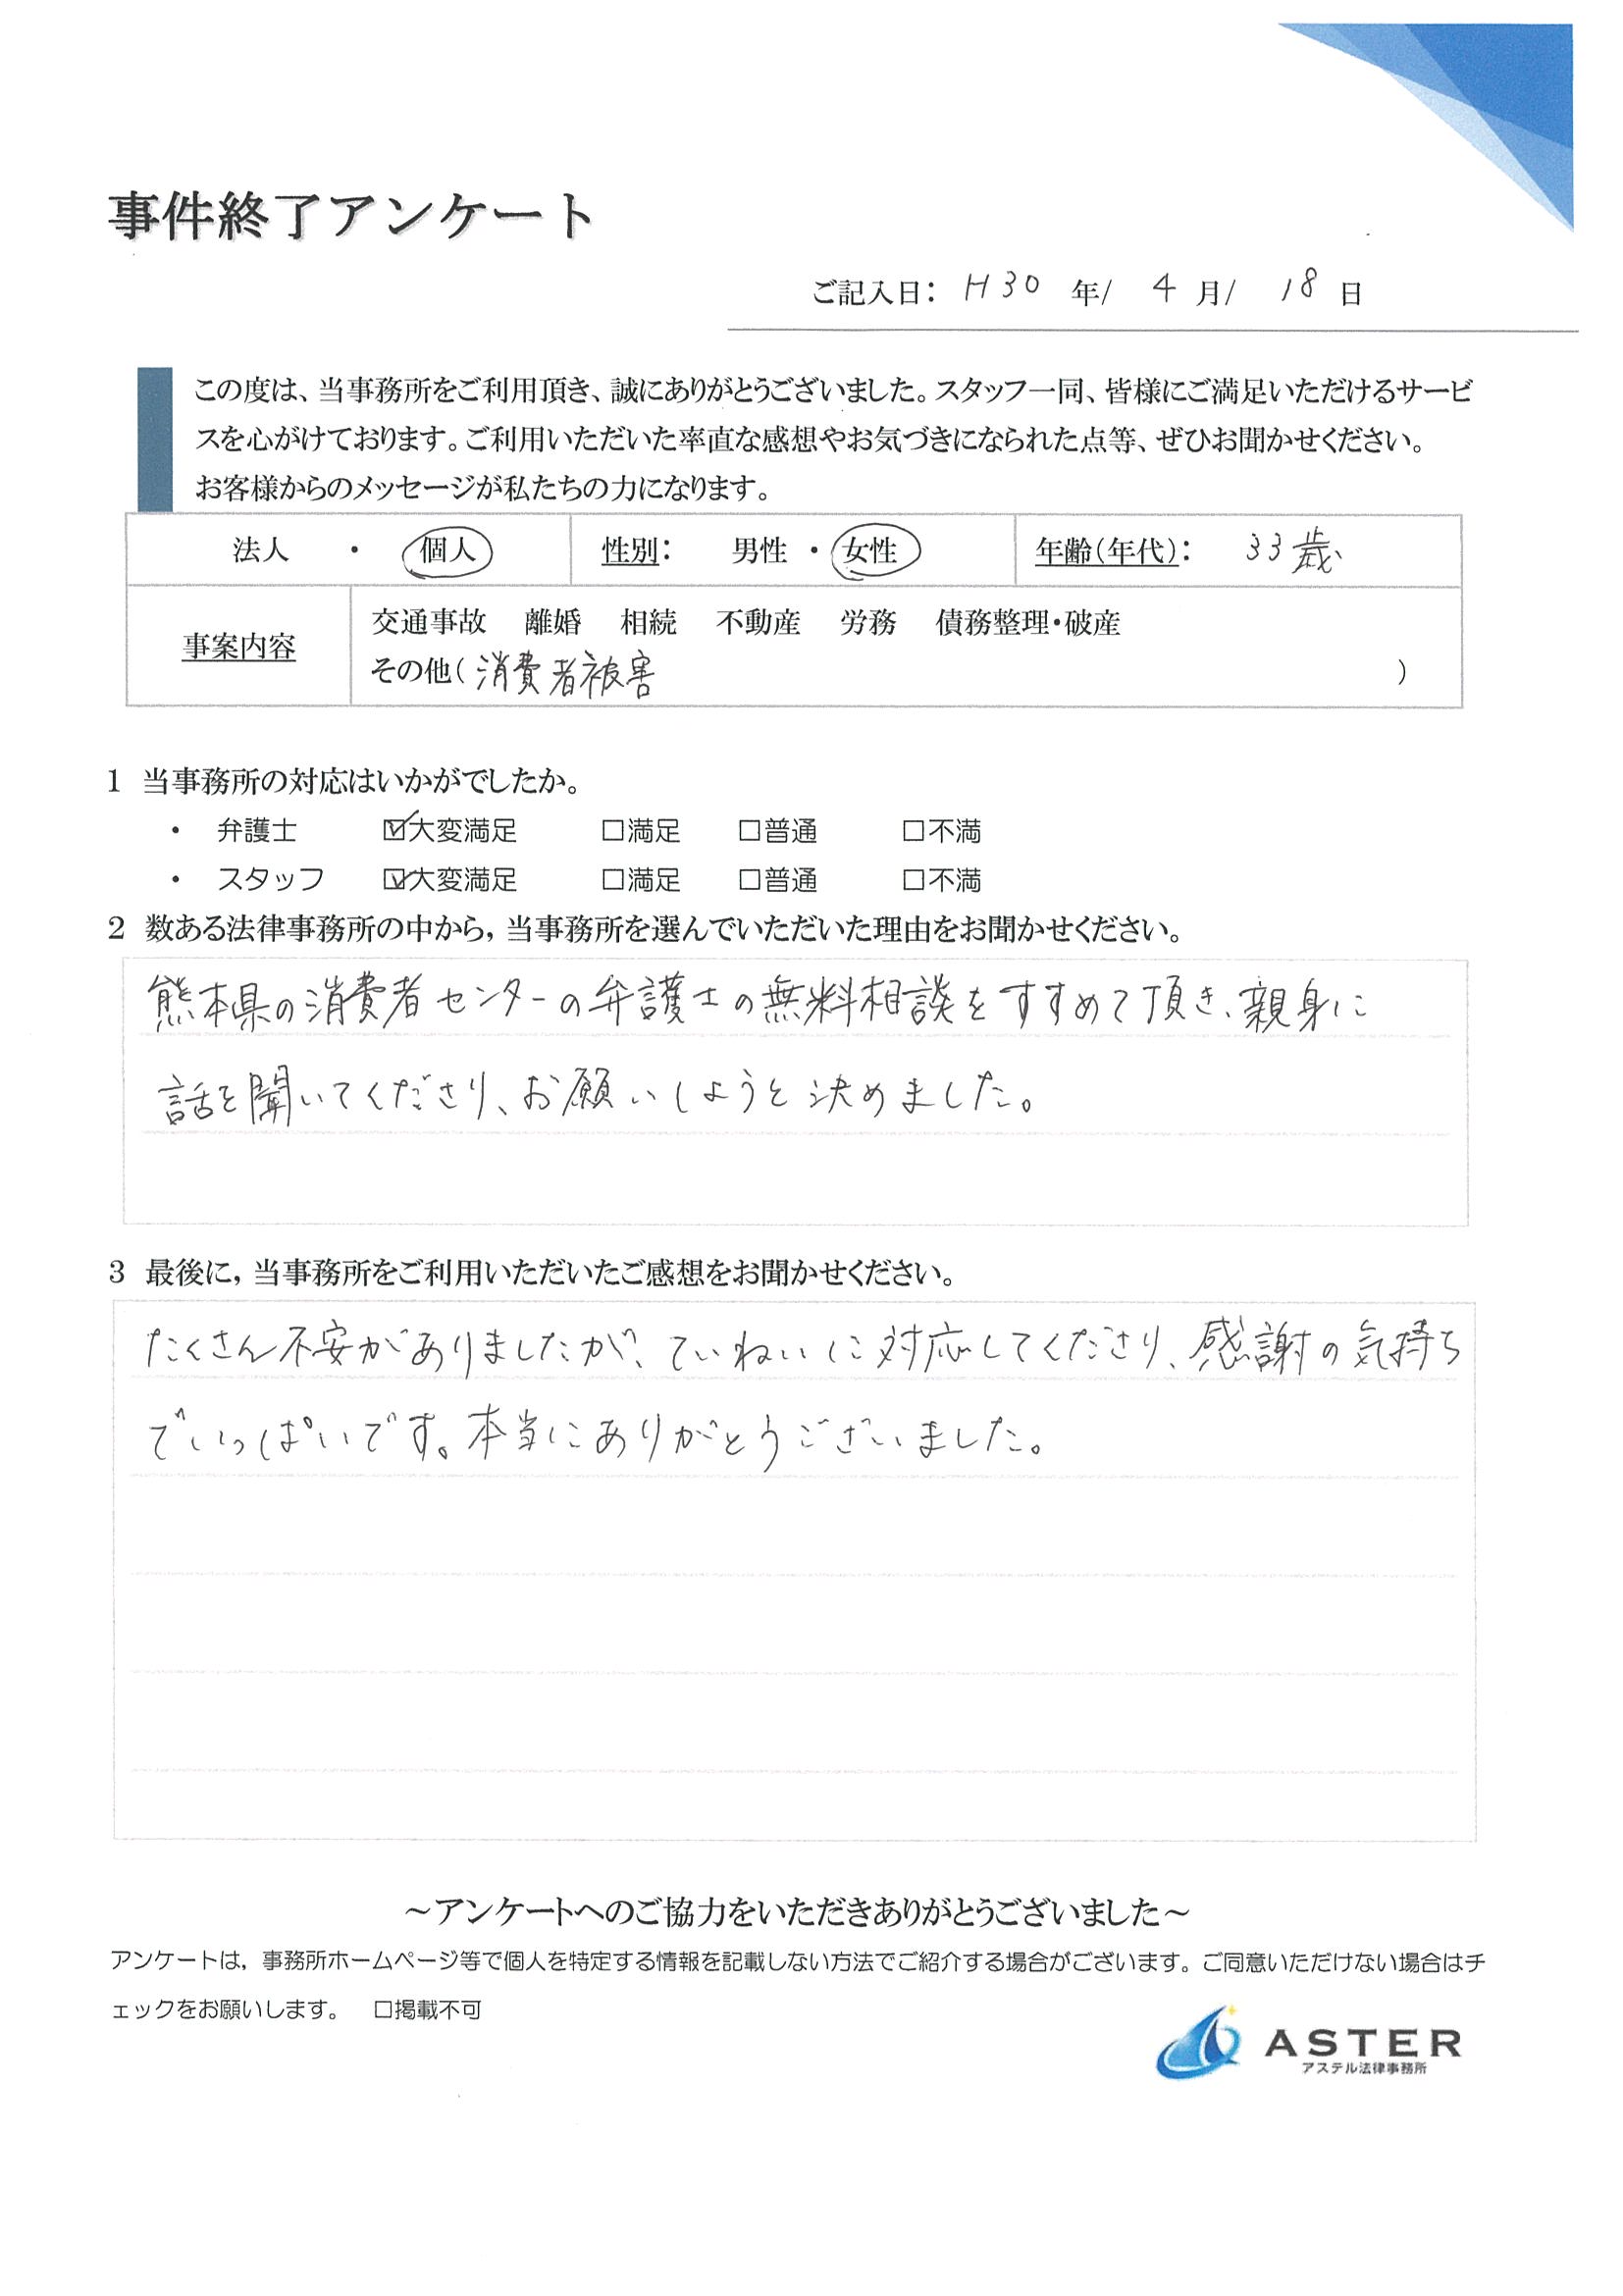 事件終了アンケート
ご記入日： H30 年/ 4 月/ 18 日
この度は、当事務所をご利用頂き、誠にありがとうございました。スタッフ一同、皆様にご満足いただけるサービ
スを心がけております。ご利用いただいた率直な感想やお気づきになられた点等、ぜひお聞かせください。
お客様からのメッセージが私たちの力になります。
法人 ・ 個人 性別： 男性 ・ 女性 年齢（年代）： 33歳
事案内容
交通事故 離婚 相続 不動産 労務 債務整理・破産
その他（ 消費者被害 ）
1 当事務所の対応はいかがでしたか。
・ 弁護士 ☑大変満足 □満足 □普通 □不満
・ スタッフ ☑大変満足 □満足 □普通 □不満
2 数ある法律事務所の中から，当事務所を選んでいただいた理由をお聞かせください。
熊本県の消費者センターの弁護士の無料相談をすすめて頂き、親身に
話を聞いてくださり、お願いしようと決めました。
3 最後に，当事務所をご利用いただいたご感想をお聞かせください。
たくさん不安がありましたが、ていねいに対応してくださり、感謝の気持ち
でいっぱいです。本当にありがとうございました。
～アンケートへのご協力をいただきありがとうございました～
アンケートは，事務所ホームページ等で個人を特定する情報を記載しない方法でご紹介する場合がございます。ご同意いただけない場合はチ
ェックをお願いします。 □掲載不可
ASTER
アステル法律事務所